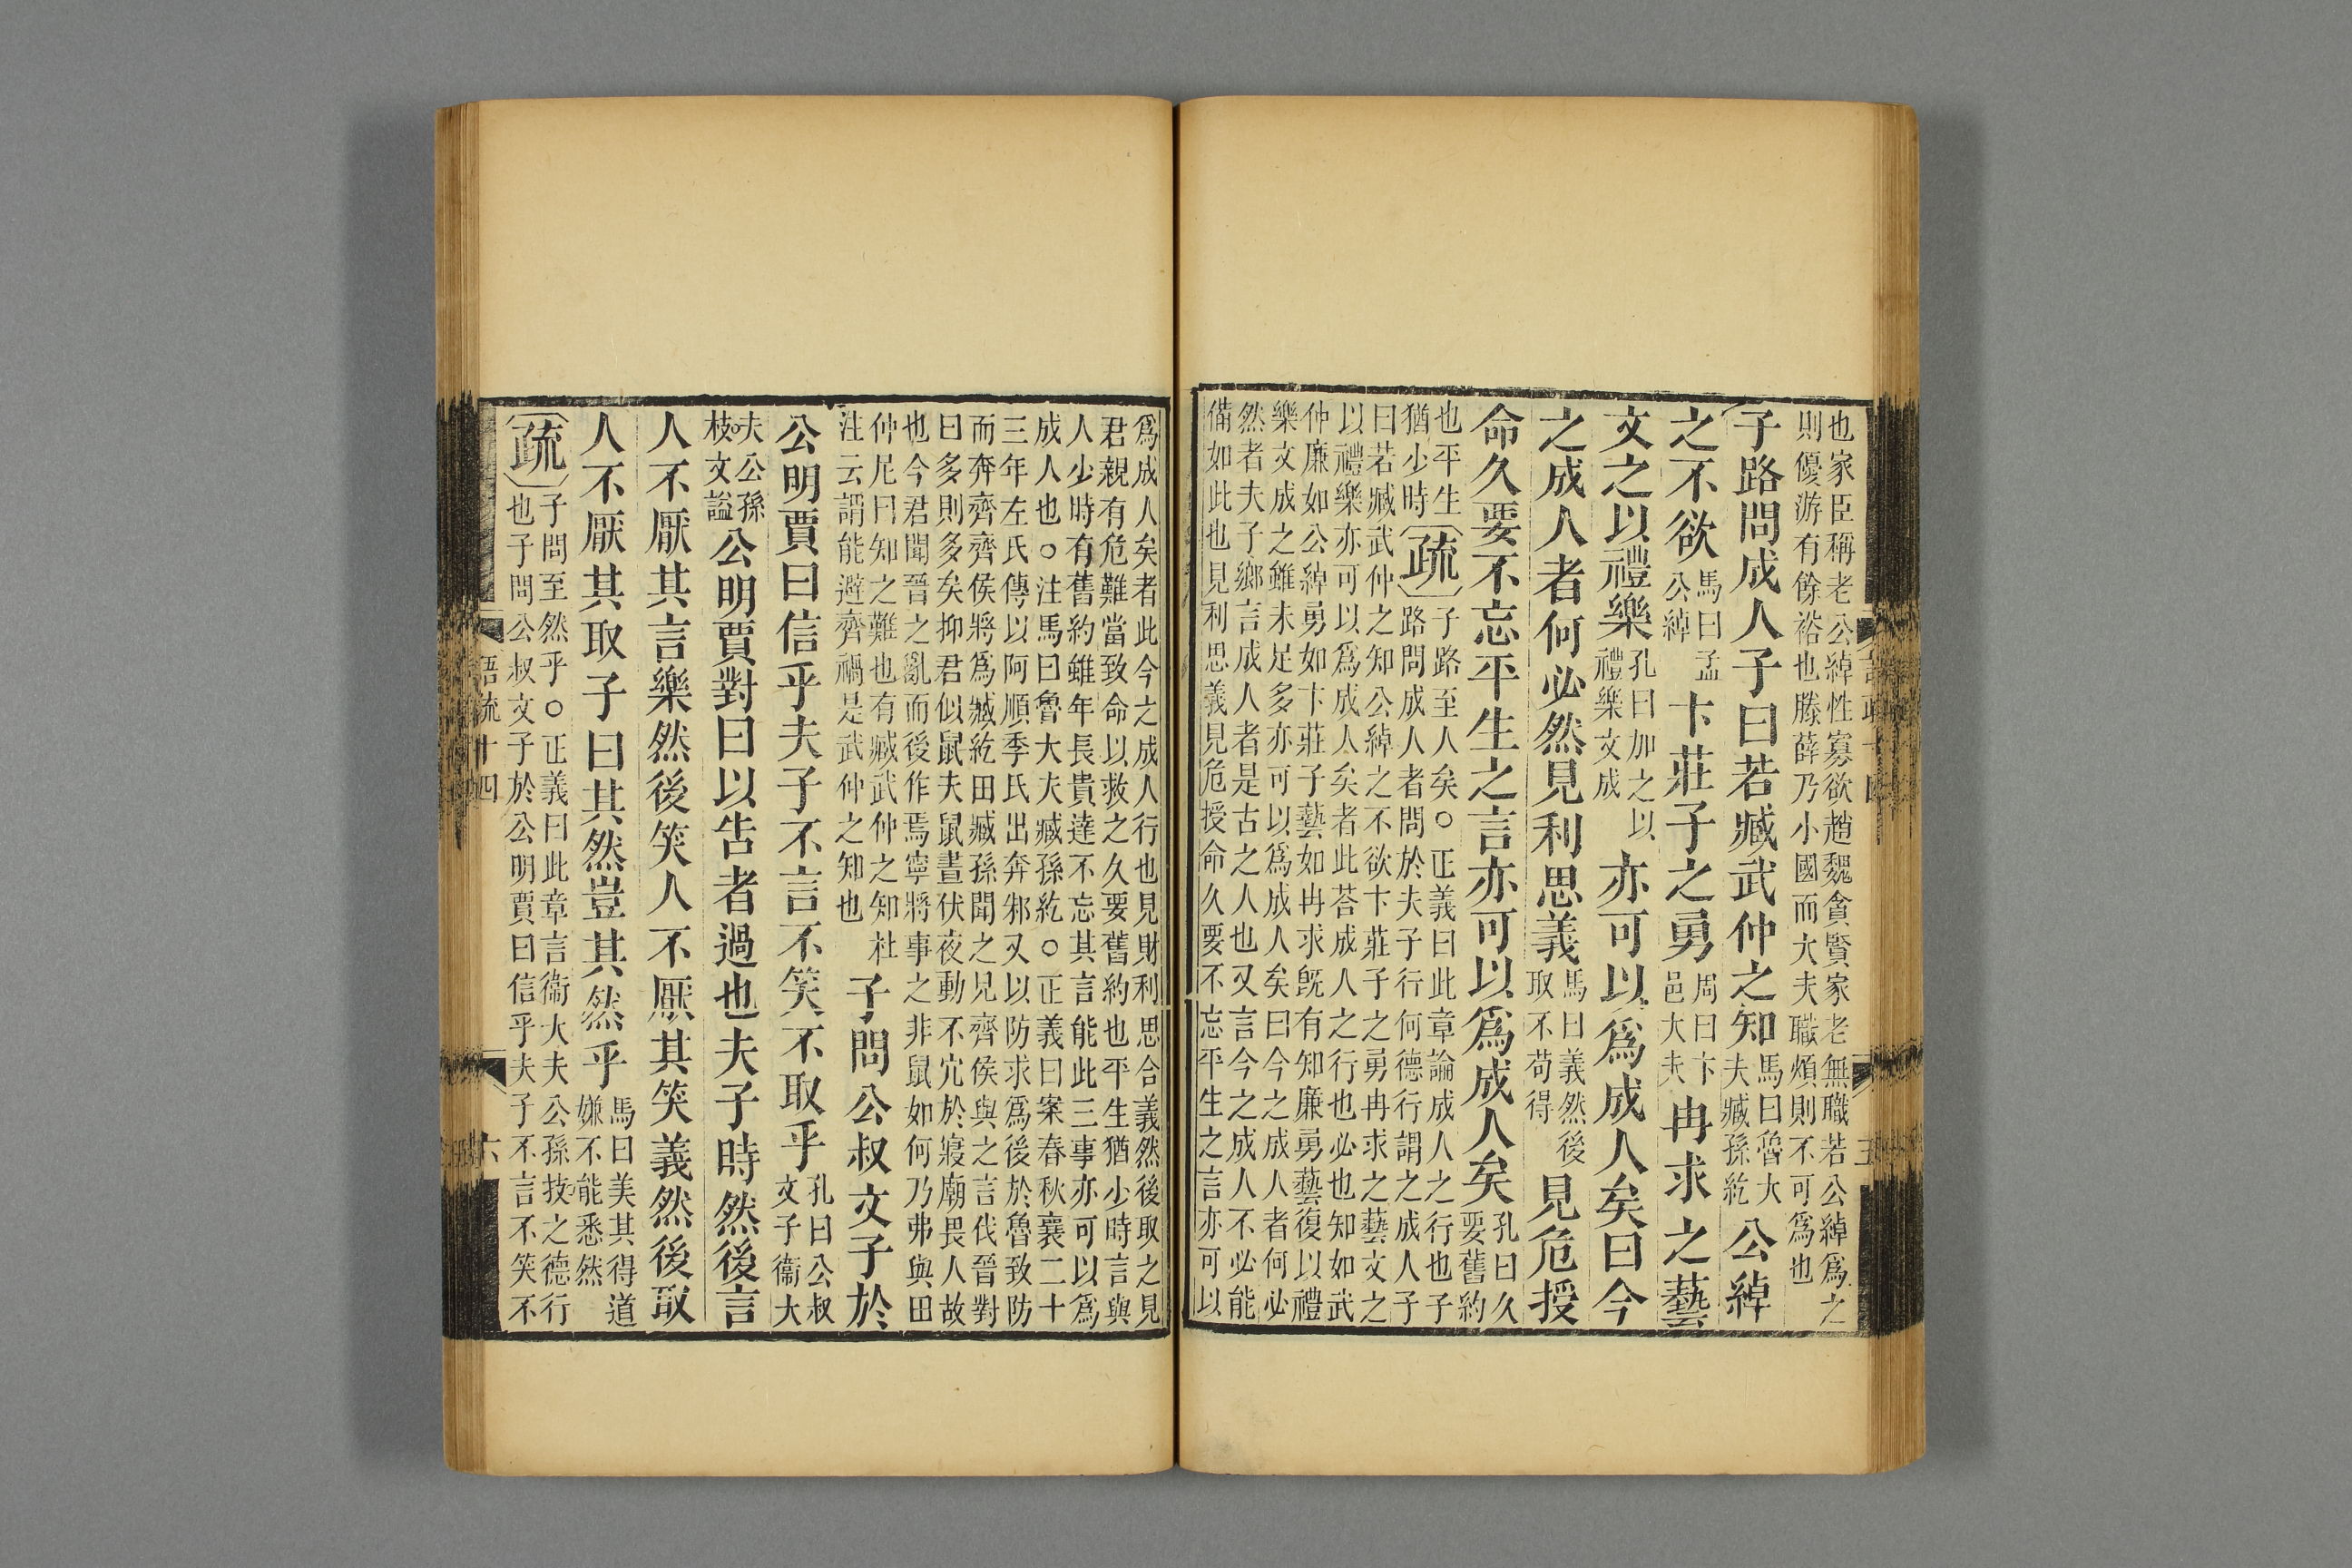 也家臣稱老公綽性寡欲趙魏貪賢家老無職若公綽爲之
則優游有餘裕也滕薛乃小國而大夫職煩則不可爲也
子路問成人子曰若臧武仲之知馬曰魯大夫臧孫紇公綽
之不欲馬曰孟公綽卞莊子之勇周曰卞邑大夫冉求之藝
文之以禮樂孔曰加之以禮樂文成亦可以爲成人矣曰今
之成人者何必然見利思義馬曰義然後取不苟得見危授
命久要不忘平生之言亦可以爲成人矣孔曰久要舊約
也平生猶少時疏子路至人矣○正義曰此章論成人之行也子
路問成人者問於夫子行何德行謂之成人子
曰若臧武仲之知公綽之不欲卞莊子之勇冉求之藝文之
以禮樂亦可以爲成人矣者此荅成人之行也必也知如武
仲廉如公綽勇如卞莊子藝如冉求旣有知廉勇藝復以禮
樂文成之雖未足多亦可以爲成人矣曰今之成人者何必
然者夫子鄉言成人者是古之人也又言今之成人不必能
備如此也見利思義見危授命久要不忘平生之言亦可以
爲成人矣者此今之成人行也見財利思合義然後取之見
君親有危難當致命以救之久要舊約也平生猶少時言與
人少時有舊約雖年長貴達不忘其言能此三事亦可以爲
成人也○注馬曰魯大夫臧孫紇○正義曰案春秋襄二十
三年左氏傳以阿順季氏出奔邾又以防求爲後於魯致防
而奔齊齊侯將爲臧紇田臧孫聞之見齊侯與之言伐晉對
曰多則多矣抑君似鼠夫鼠晝伏夜動不穴於寢廟畏人故
也今君聞晉之亂而後作焉寧將事之非鼠如何乃弗與田
仲尼曰知之難也有臧武仲之知杜
注云謂能避齊禍是武仲之知也子問公叔文子於
公明賈曰信乎夫子不言不笑不取乎孔曰公叔文子衞大
夫公孫枝文謚公明賈對曰以吿者過也夫子時然後言
人不厭其言樂然後笑人不厭其笑義然後取
人不厭其取子曰其然豈其然乎馬曰美其得道嫌不能悉然
疏子問至然乎○正義曰此章言衞大夫公孫技之德行
也子問公叔文子於公明賈曰信乎夫子不言不笑不
語疏十四
六